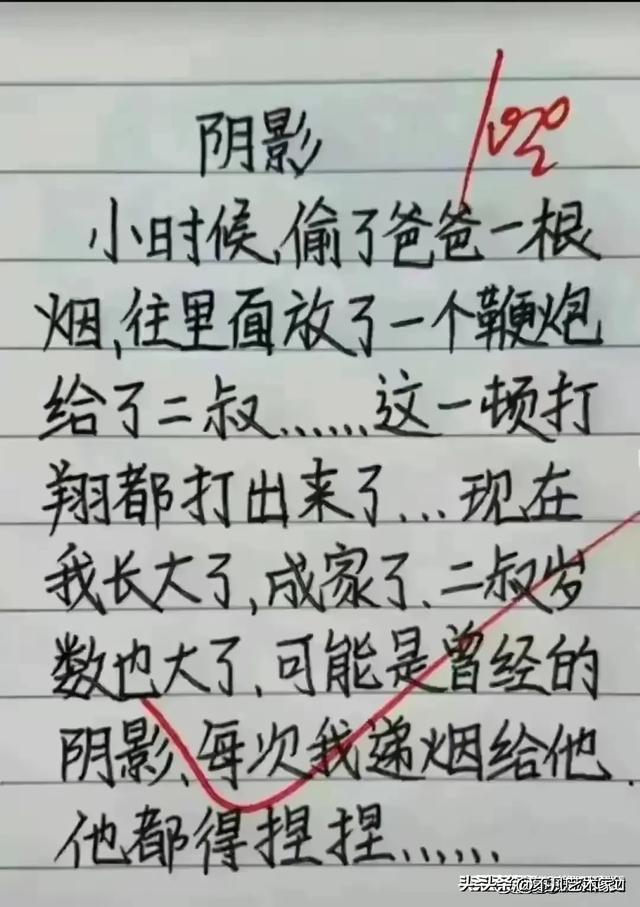 阴影
小时候,偷了爸爸一根
烟,往里面放了一个鞭炮
给了二叔......这一顿打
翔都打出来了...现在
我长大了,成家了、二叔岁
数也大了、可能是曾经的
阴影、每次我递烟给他
他都得捏捏......